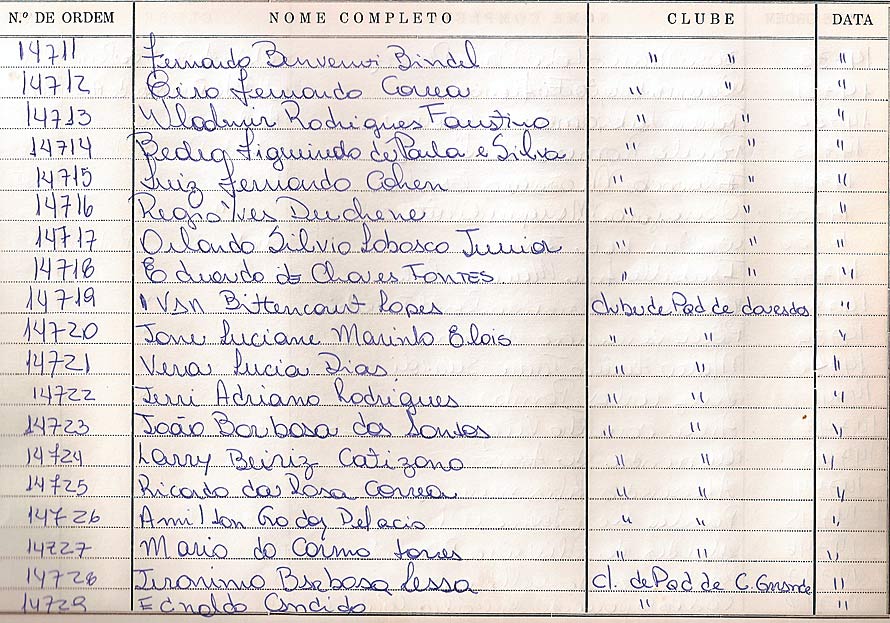 N.º DE ORDEM NOME COMPLETO CLUBE DATA
14711 Fernando Benvenuzi Bindel " " "
14712 Ciro Fernando Correa " " "
14713 Wlademir Rodrigues Faustino " " "
14714 Pedro Figueiredo de Paula e Silva " " "
14715 Luiz Fernando Cohen " " "
14716 Regis Ives Deuchene " " "
14717 Orlando Silvio Lobasco Junior " " "
14718 Eduardo de Chaves FONTES " " "
14719 Ivan Bittencourt Lopes Clube de Pqd de "
14720 Jane Luciane Marinho Elois " " "
14721 Vera Lucia Dias " " "
14722 Jerri Adriano Rodrigues " " "
14723 João Barbosa dos Santos " " "
14724 Larry Beiriz Catizano " " "
14725 Ricardo da Rosa Correa " " "
14726 Amilton Godoy " " "
14727 Mario do Carmo Torres " " "
14728 Jeronimo Barbosa Lessa Cl. de Pqd de C. Grande "
14729 Ednaldo Candido " "